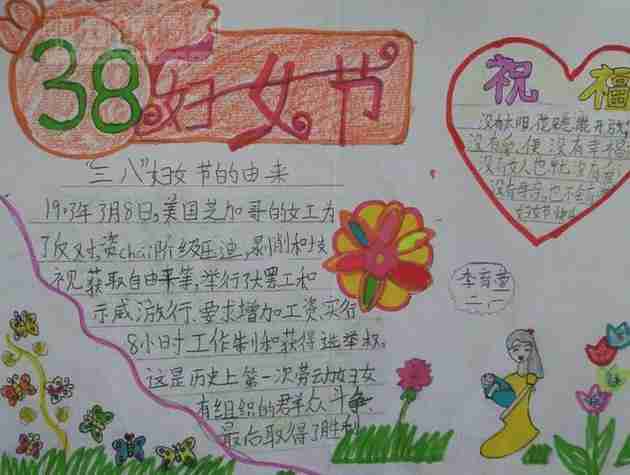 38 妇女节
"三八"妇女节的由来
1903年3月8日,美国芝加哥的女工为
了反对资chai阶级压迫,剥削和歧
视获取自由平等,举行了大罢工和
示威游行,要求增加工资实行
8小时工作制和获得选举权。
这是历史上第一次劳动妇女
有组织的群众斗争,
最后取得了胜利
祝福
没有太阳,花
没有爱,便没有幸福
没有女人也就没有
没有母亲,也不会有
妇女节快
李育萱
二、一